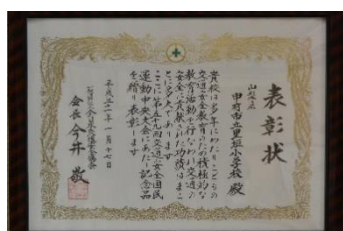 表彰状
山梨県
甲府市立里垣小学校 殿
貴校は多年にわたりこどもの
交通安全教育のため積極的な
教育活動を行ない交通の
安全に貢献された功績はまこ
とに多大であります
ここに第五十九回交通安全国民
運動中央大会にあたり記念品
を贈り表彰します
平成三十一年一月十七日
会長 今井 敬